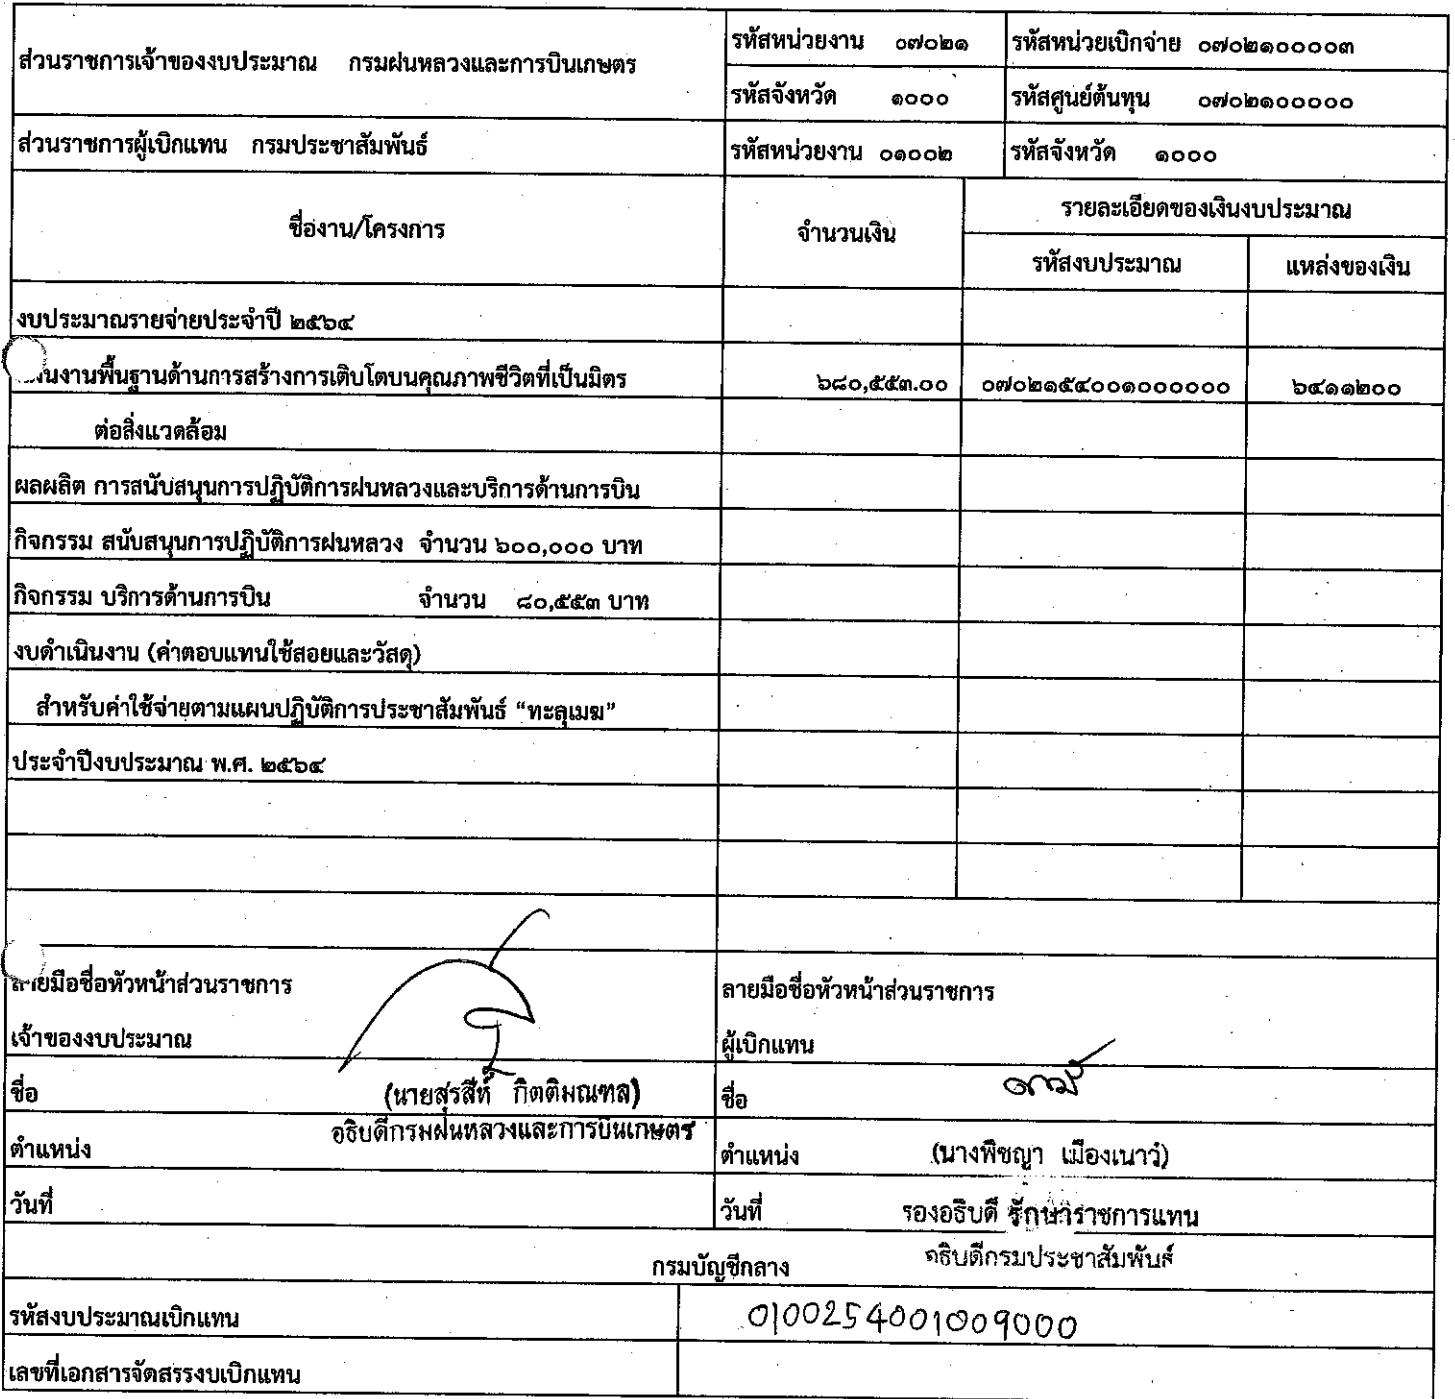 ส่วนราชการเจ้าของงบประมาณ กรมฝนหลวงและการบินเกษตร
รหัสหน่วยงาน ๐๗๐๒๑
รหัสหน่วยเบิกจ่าย ๐๗๐๒๑๐๐๐๐๓
รหัสจังหวัด ๑๐๐๐
รหัสศูนย์ต้นทุน ๐๗๐๒๑๐๐๐๐๐
ส่วนราชการผู้เบิกแทน กรมประชาสัมพันธ์
รหัสหน่วยงาน ๐๑๐๐๒
รหัสจังหวัด ๑๐๐๐
ชื่องาน/โครงการ
จำนวนเงิน
รายละเอียดของเงินงบประมาณ
รหัสงบประมาณ
แหล่งของเงิน
งบประมาณรายจ่ายประจำปี ๒๕๖๔
แผนงานพื้นฐานด้านการสร้างการเติบโตบนคุณภาพชีวิตที่เป็นมิตร ๖๘๐,๕๕๓.๐๐ ๐๗๐๒๑๕๔๐๐๑๐๐๐๐๐๐ ๖๔๑๑๒๐๐
ต่อสิ่งแวดล้อม
ผลผลิต การสนับสนุนการปฏิบัติการฝนหลวงและบริการด้านการบิน
กิจกรรม สนับสนุนการปฏิบัติการฝนหลวง จำนวน ๖๐๐,๐๐๐ บาท
กิจกรรม บริการด้านการบิน จำนวน ๘๐,๕๕๓ บาท
งบดำเนินงาน (ค่าตอบแทนใช้สอยและวัสดุ)
สำหรับค่าใช้จ่ายตามแผนปฏิบัติการประชาสัมพันธ์ “ทะลุเมฆ”
ประจำปีงบประมาณ พ.ศ. ๒๕๖๔
ลายมือชื่อหัวหน้าส่วนราชการ
เจ้าของงบประมาณ
ชื่อ (นายสุรสีห์ กิตติมณฑล)
อธิบดีกรมฝนหลวงและการบินเกษตร
ตำแหน่ง
วันที่
ลายมือชื่อหัวหน้าส่วนราชการ
ผู้เบิกแทน
ชื่อ
ตำแหน่ง (นางพิชญา เมืองเนาว์)
วันที่ รองอธิบดี รักษาราชการแทน
อธิบดีกรมประชาสัมพันธ์
กรมบัญชีกลาง
รหัสงบประมาณเบิกแทน 0100254001009000
เลขที่เอกสารจัดสรรงบเบิกแทน